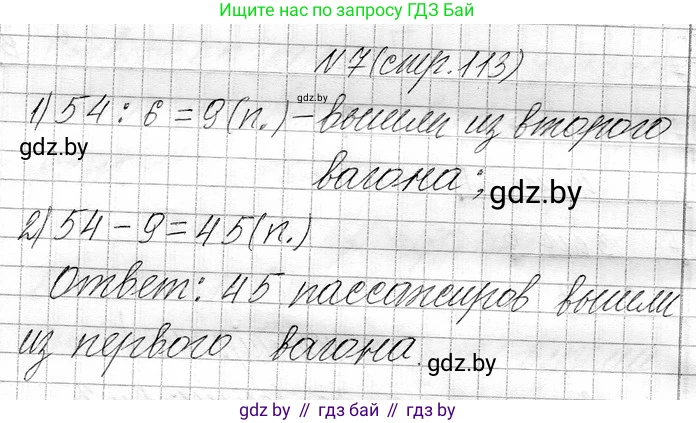 Ищите нас по запросу ГДЗ Бай
N 7 (стр. 113)
gdz.by
1) 54 : 6 = 9 (п.) - вышли из второго
gdz.by
вагона;
gdz.by
2) 54 - 9 = 45 (п.)
Ответ: 45 пассажиров вышли
из первого вагона.
gdz.by
gdz.by // гдз бай // гдз.by